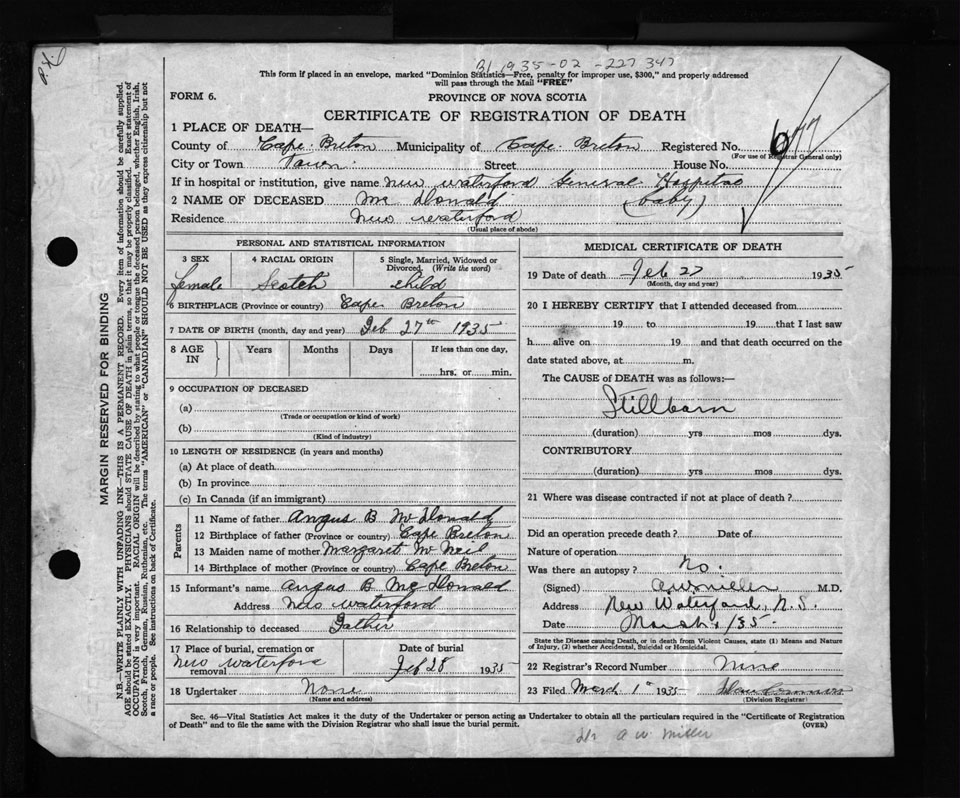 31 1935-02-227347
This form if placed in an envelope, marked "Dominion Statistics—Free, penalty for improper use, $300," and properly addressed
will pass through the Mail "FREE"
FORM 6.
PROVINCE OF NOVA SCOTIA
CERTIFICATE OF REGISTRATION OF DEATH
677
1 PLACE OF DEATH—
County of Cape Breton Municipality of Cape Breton Registered No.
(For use of Registrar General only)
City or Town Town Street House No.
If in hospital or institution, give name New Waterford General Hospital
2 NAME OF DECEASED Mc Donald (baby)
Residence New Waterford
(Usual place of abode)
PERSONAL AND STATISTICAL INFORMATION
3 SEX 4 RACIAL ORIGIN 5 Single, Married, Widowed or Divorced. (Write the word)
female Scotch child
6 BIRTHPLACE (Province or country) Cape Breton
7 DATE OF BIRTH (month, day and year) Feb 27th 1935
8 AGE IN Years Months Days If less than one day,
hrs. or min.
9 OCCUPATION OF DECEASED
(a)
(Trade or occupation or kind of work)
(b)
(Kind of industry)
10 LENGTH OF RESIDENCE (in years and months)
(a) At place of death
(b) In province
(c) In Canada (if an immigrant)
Parents
11 Name of father Angus B McDonald
12 Birthplace of father (Province or country) Cape Breton
13 Maiden name of mother Margaret McNeil
14 Birthplace of mother (Province or country) Cape Breton
15 Informant's name Angus B McDonald
Address New Waterford
16 Relationship to deceased Father
17 Place of burial, cremation or removal New Waterford
Date of burial
Feb 28 1935
18 Undertaker None
(Name and address)
MEDICAL CERTIFICATE OF DEATH
19 Date of death Feb 27 1935
(Month, day and year)
20 I HEREBY CERTIFY that I attended deceased from
19 to 19 that I last saw
h alive on 19 and that death occurred on the
date stated above, at m.
The CAUSE of DEATH was as follows:—
Stillborn
(duration) yrs mos dys.
CONTRIBUTORY
(duration) yrs mos dys.
21 Where was disease contracted if not at place of death?
Did an operation precede death? Date of
Nature of operation
Was there an autopsy? No.
(Signed) A W Miller M.D.
Address New Waterford, N.S.
Date March 1/35.
State the Disease causing Death, or in death from Violent Causes, state (1) Means and Nature
of Injury, (2) whether Accidental, Suicidal or Homicidal.
22 Registrar's Record Number Nine
23 Filed March 1st 1935
(Division Registrar)
Sec. 46—Vital Statistics Act makes it the duty of the Undertaker or person acting as Undertaker to obtain all the particulars required in the "Certificate of Registration
of Death" and to file the same with the Division Registrar who shall issue the burial permit.
(OVER)
Dr A W Miller
MARGIN RESERVED FOR BINDING
N.B.—WRITE PLAINLY WITH UNFADING INK—THIS IS A PERMANENT RECORD. Every item of information should be carefully supplied.
AGE should be stated EXACTLY. PHYSICIANS should STATE CAUSE OF DEATH in plain terms, so that it may be properly classified. Exact statement of
OCCUPATION is very important. RACIAL ORIGIN will be described by stating to what people or tongue the deceased person belonged, whether English, Irish,
Scotch, French, German, Russian, Ruthenian, etc. The terms "AMERICAN" or "CANADIAN" SHOULD NOT BE USED as they express citizenship but not
a race or people. See instructions on back of Certificate.